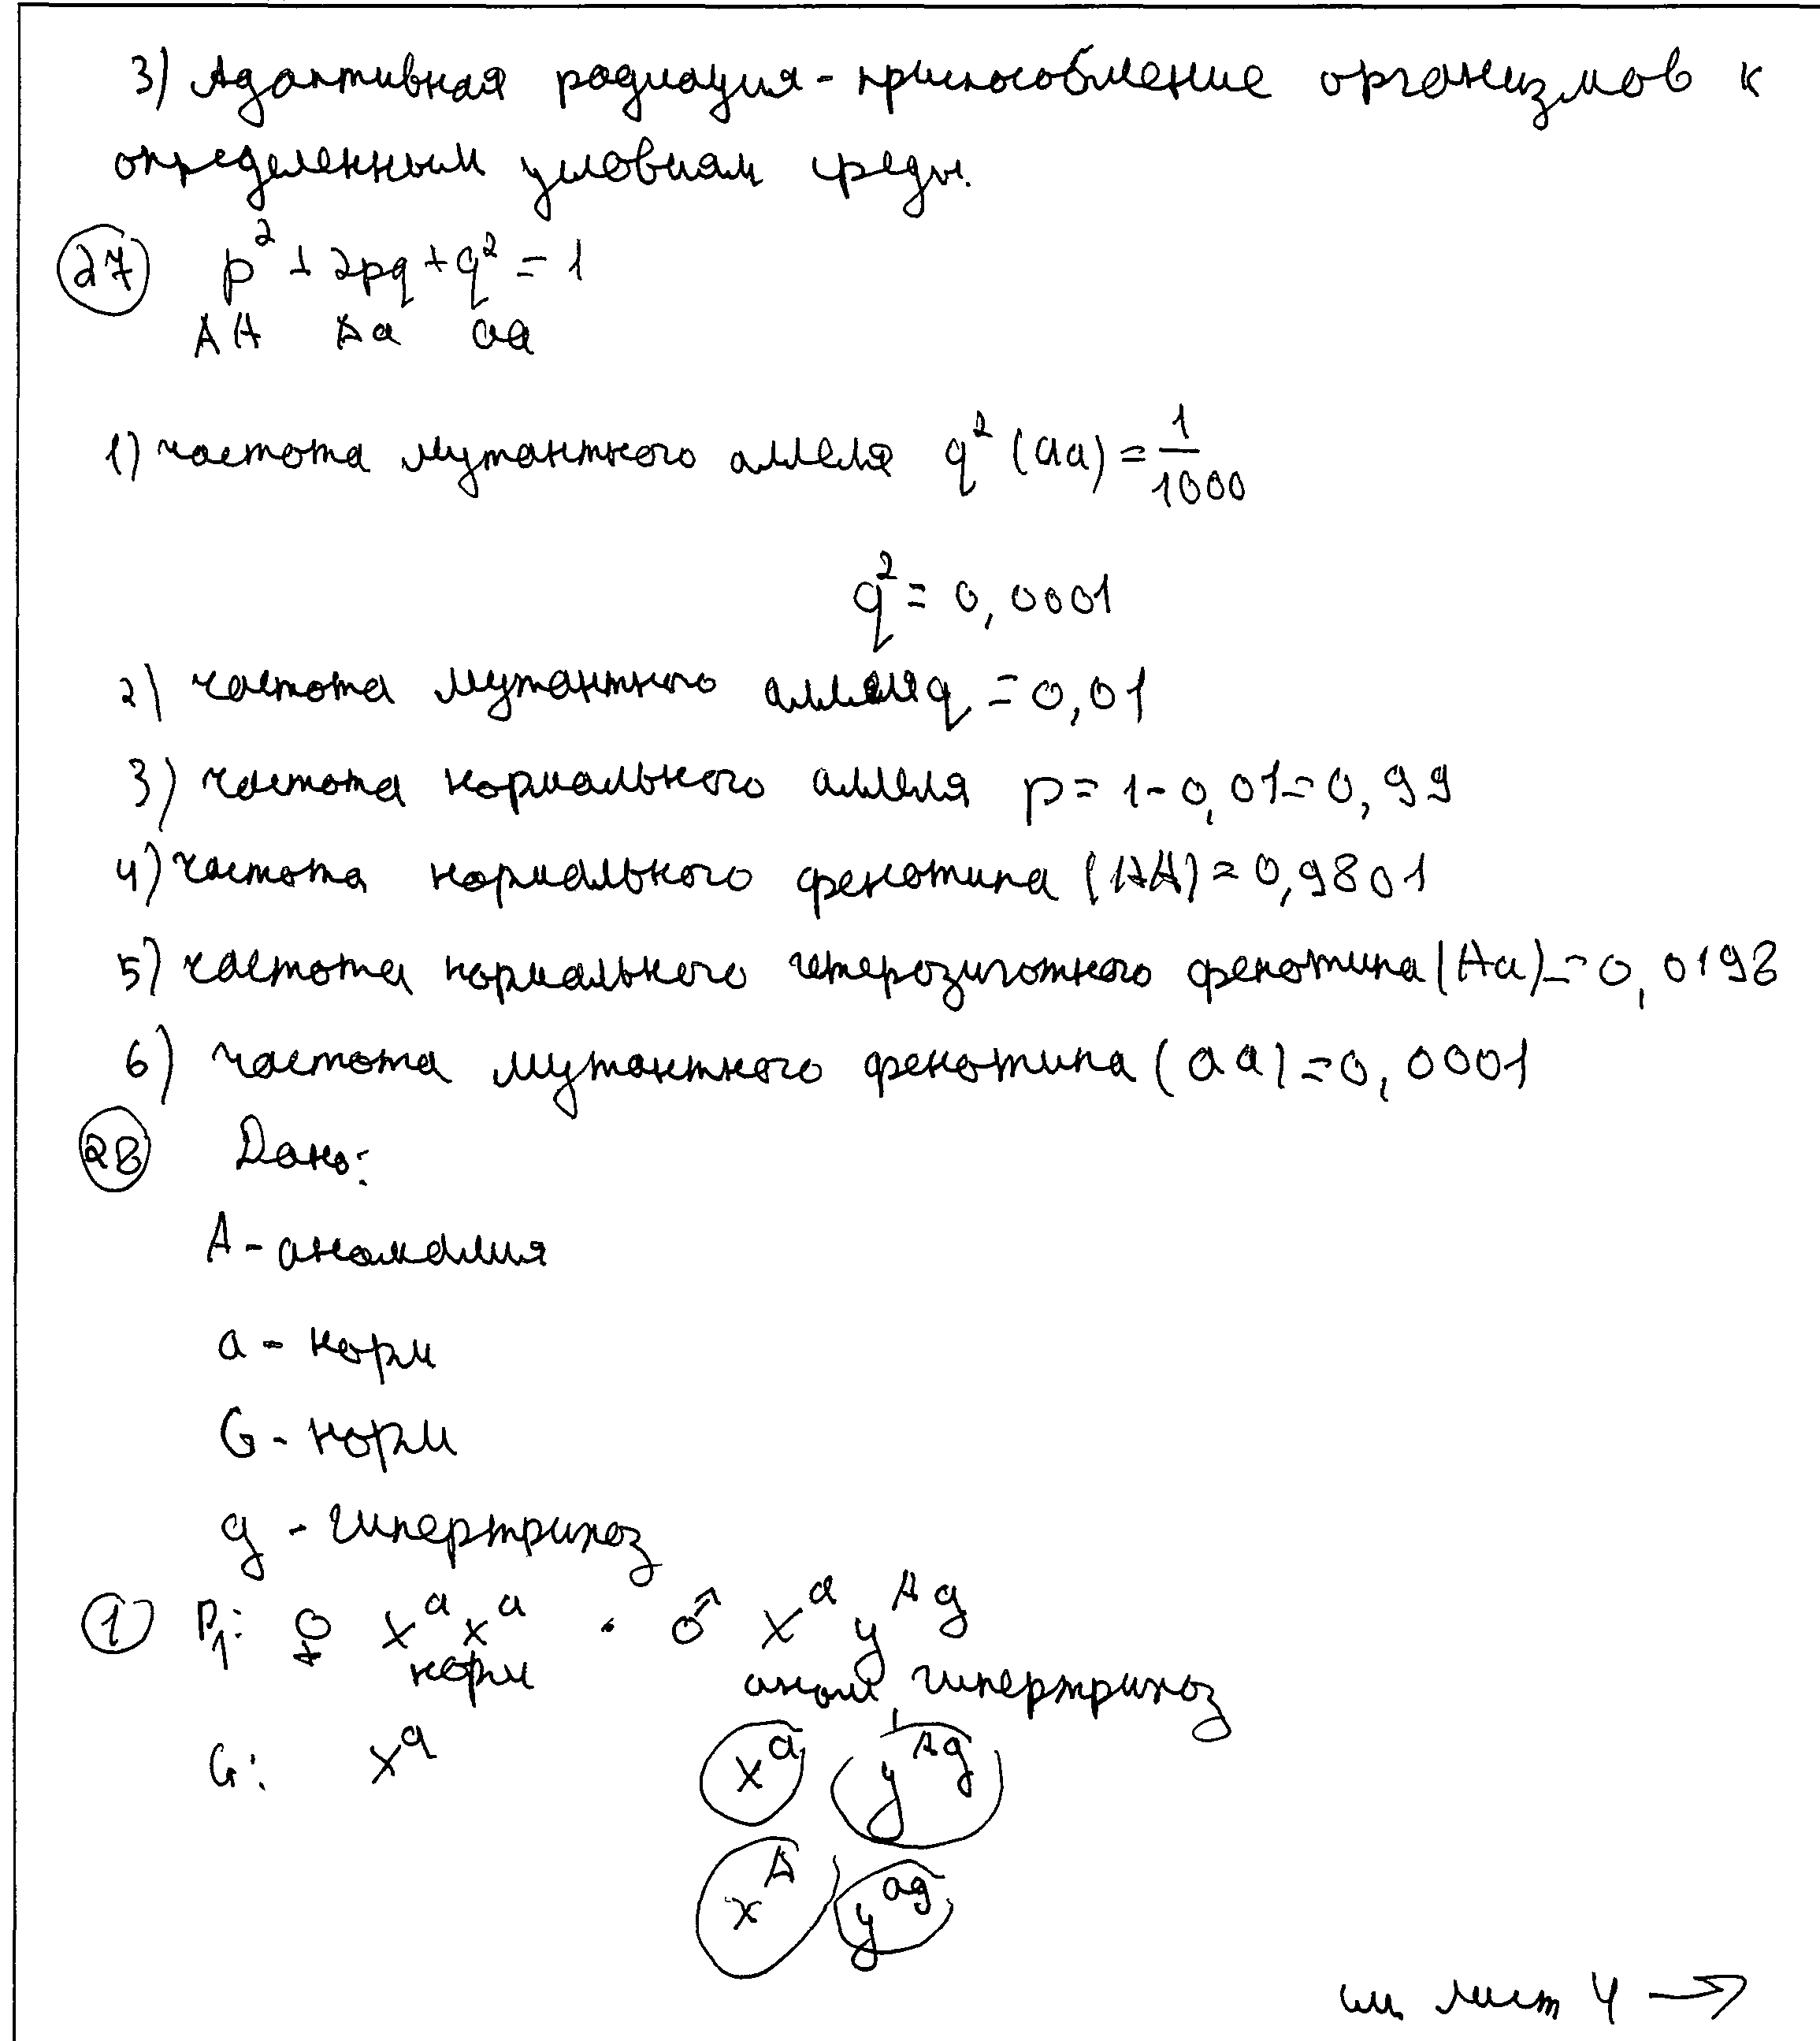 3) Адаптивная радиация - приспособление организмов к
определенным условиям среды.
27 p² + 2pq + q² = 1
AA Aa aa
1) частота мутантного аллеля q² (aa) = 1/1000
q² = 0,0001
2) частота мутантного аллеля q = 0,01
3) частота нормального аллеля p = 1 - 0,01 = 0,99
4) частота нормального фенотипа (AA) = 0,9801
5) частота нормального гетерозиготного фенотипа (Aa) = 0,0198
6) частота мутантного фенотипа (aa) = 0,0001
28 Дано:
A - аномалия
a - норм
G - норм
g - гипертрихоз
1 P₁: ♀ XᵃXᵃ · ♂ XᵃYᴬᵍ
норм аном, гипертрихоз
G: Xᵃ Xᵃ Yᴬᵍ
Xᴬ Yᵃᵍ
см лист 4 →